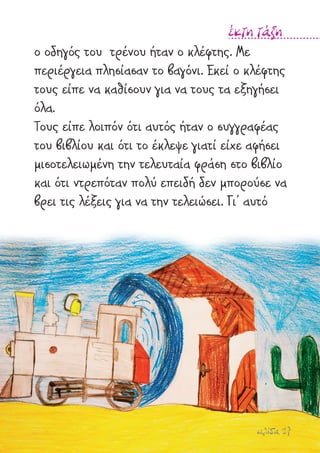 έκτη τάξη
ο οδηγός του τρένου ήταν ο κλέφτης. Με
περιέργεια πλησίασαν το βαγόνι. Εκεί ο κλέφτης
τους είπε να καθίσουν για να τους τα εξηγήσει
όλα.
Τους είπε λοιπόν ότι αυτός ήταν ο συγγραφέας
του βιβλίου και ότι το έκλεψε γιατί είχε αφήσει
μισοτελειωμένη την τελευταία φράση στο βιβλίο
και ότι ντρεπόταν πολύ επειδή δεν μπορούσε να
βρει τις λέξεις για να την τελειώσει. Γι' αυτό
σελίδα 27